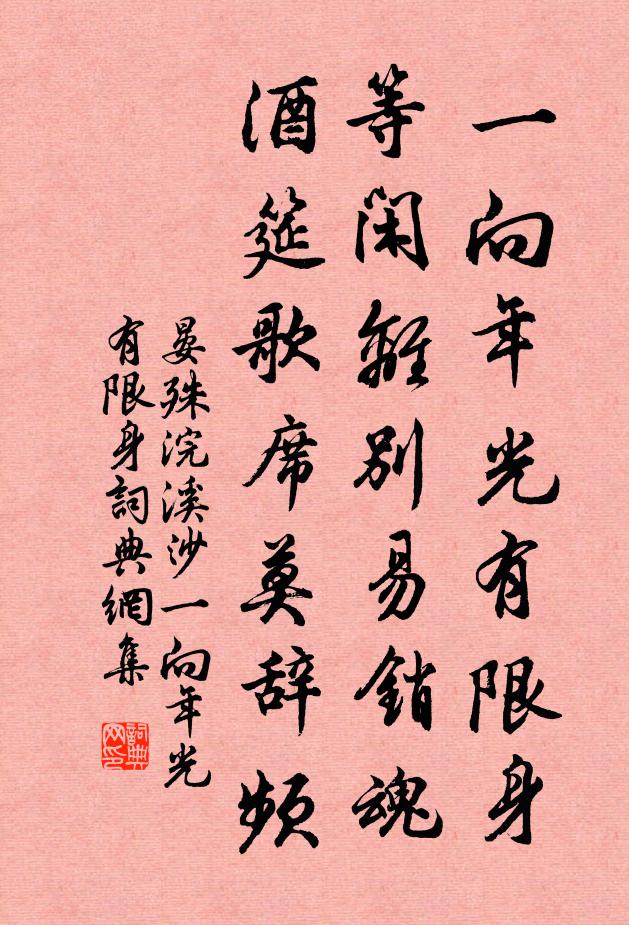 一向年光有限身
等闲離别易銷魂
酒筵歌席莫辞頻
晏殊浣溪沙一向年光
有限身詞典網集
詞典网印